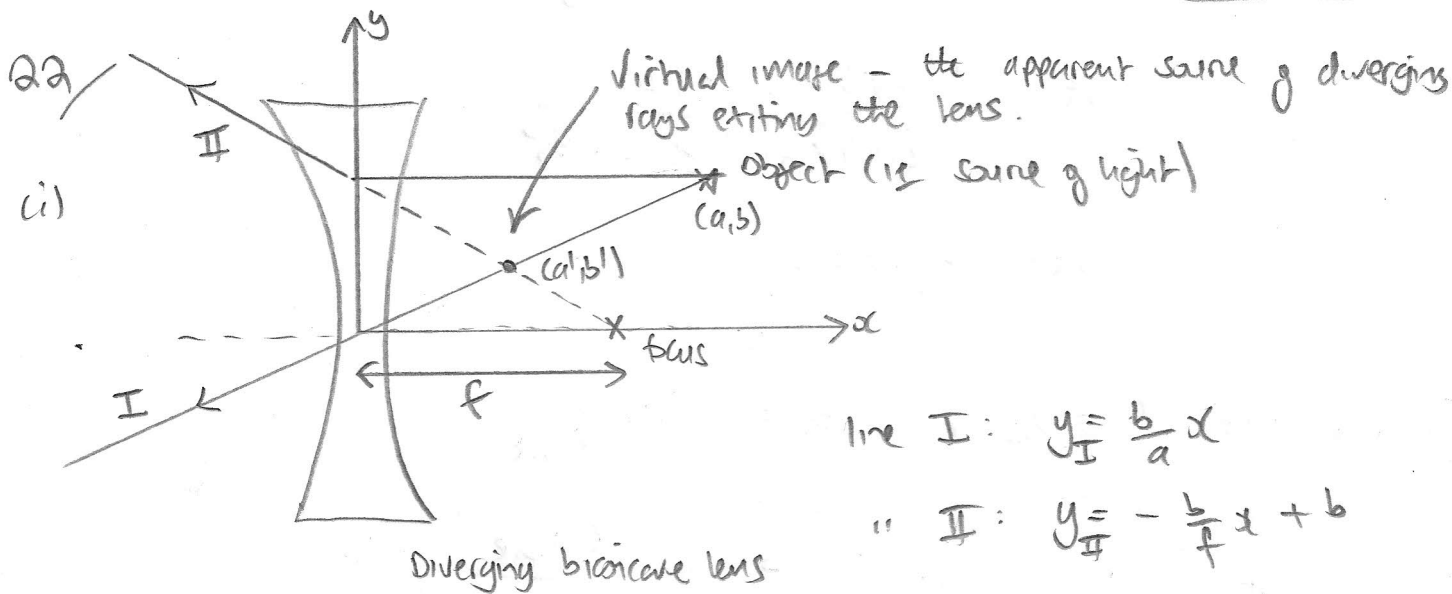 22/
y
Virtual image - the apparent source of diverging
rays exiting the lens.
II
Object (is source of light)
(i)
(a,b)
(a',b')
x
focus
I
f
line I: y_I = b/a x
" II: y_II = - b/f x + b
Diverging biconcave lens